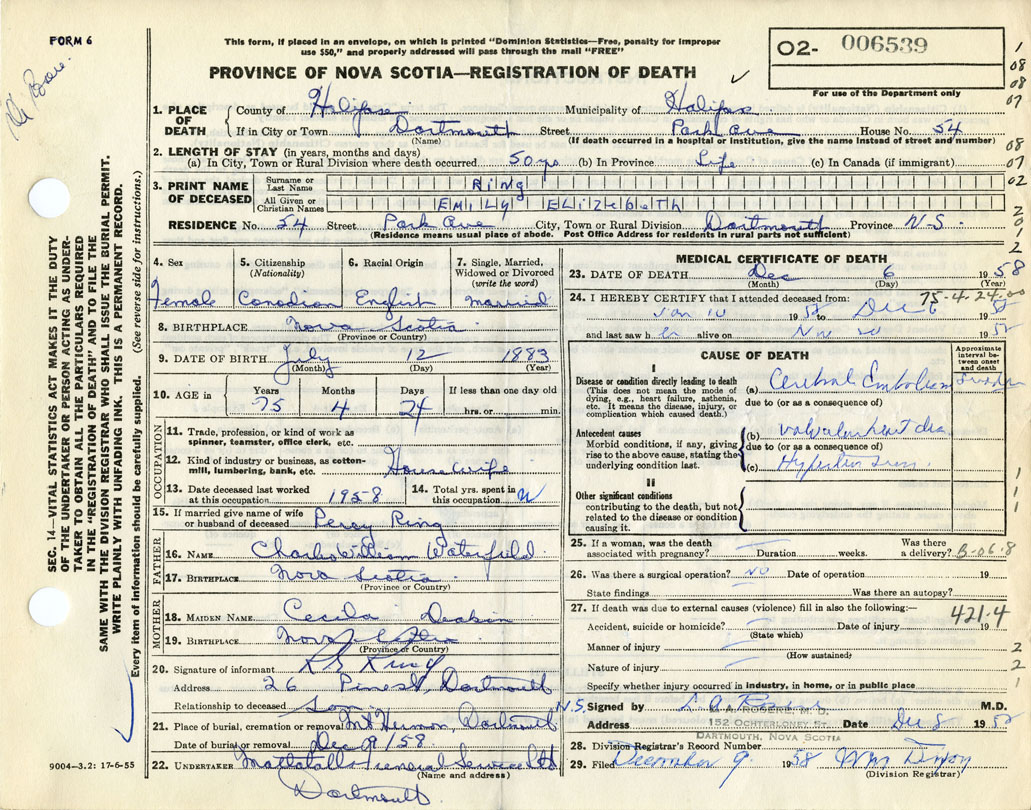 FORM 6
This form, if placed in an envelope, on which is printed "Dominion Statistics—Free, penalty for improper
use $50," and properly addressed will pass through the mail "FREE"
O2- 006539
For use of the Department only
PROVINCE OF NOVA SCOTIA—REGISTRATION OF DEATH
1. PLACE OF DEATH { County of Halifax Municipality of Halifax
If in City or Town Dartmouth Street Park Ave House No. 54
(Name) (If death occurred in a hospital or institution, give the name instead of street and number)
2. LENGTH OF STAY (in years, months and days)
(a) In City, Town or Rural Division where death occurred 50 yrs (b) In Province Life (c) In Canada (if immigrant)
3. PRINT NAME OF DECEASED Surname or Last Name RING
All Given or Christian Names EMILY ELIZABETH
RESIDENCE No. 54 Street Park Ave City, Town or Rural Division Dartmouth Province N.S.
(Residence means usual place of abode. Post Office Address for residents in rural parts not sufficient)
SEC. 14—VITAL STATISTICS ACT MAKES IT THE DUTY
OF THE UNDERTAKER OR PERSON ACTING AS UNDER-
TAKER TO OBTAIN ALL THE PARTICULARS REQUIRED
IN THE "REGISTRATION OF DEATH" AND TO FILE THE
SAME WITH THE DIVISION REGISTRAR WHO SHALL ISSUE THE BURIAL PERMIT.
WRITE PLAINLY WITH UNFADING INK. THIS IS A PERMANENT RECORD.
Every item of information should be carefully supplied. (See reverse side for instructions.)
4. Sex 5. Citizenship (Nationality) 6. Racial Origin 7. Single, Married, Widowed or Divorced (write the word)
Female Canadian English Married
8. BIRTHPLACE Nova Scotia
(Province or Country)
9. DATE OF BIRTH July 12 1883
(Month) (Day) (Year)
10. AGE in Years Months Days If less than one day old
75 4 24 hrs. or min.
OCCUPATION
11. Trade, profession, or kind of work as
spinner, teamster, office clerk, etc.
12. Kind of industry or business, as cotton-
mill, lumbering, bank, etc. Housewife
13. Date deceased last worked at this occupation 1958 14. Total yrs. spent in this occupation
15. If married give name of wife
or husband of deceased Percy Ring
FATHER
16. NAME Charles William Waterfield
17. BIRTHPLACE Nova Scotia
(Province or Country)
MOTHER
18. MAIDEN NAME Cecila Deakin
19. BIRTHPLACE Nova Scotia
(Province or Country)
20. Signature of informant Ring
Address 26 Pine St, Dartmouth
Relationship to deceased Son N.S.
21. Place of burial, cremation or removal Mt Hermon Dartmouth
Date of burial or removal Dec 9/58
22. UNDERTAKER Mattatalls Funeral Service Ltd
(Name and address)
Dartmouth
9004—3.2: 17-6-55
MEDICAL CERTIFICATE OF DEATH
23. DATE OF DEATH Dec 6 1958
(Month) (Day) (Year)
75-4-24-00
24. I HEREBY CERTIFY that I attended deceased from:
Jan 10 1958 to Dec 6 1958
and last saw her alive on Nov 20 1958
CAUSE OF DEATH
Approximate interval between onset and death
I
Disease or condition directly leading to death
(This does not mean the mode of
dying, e.g., heart failure, asthenia,
etc. It means the disease, injury, or
complication which caused death.)
(a) Cerebral Embolism Sudden
due to (or as a consequence of)
Antecedent causes
Morbid conditions, if any, giving
rise to the above cause, stating the
underlying condition last.
(b) Valvular heart dis
due to (or as a consequence of)
(c) Hypertension
II
Other significant conditions
contributing to the death, but not
related to the disease or condition
causing it.
25. If a woman, was the death Was there
associated with pregnancy? Duration weeks. a delivery? B-06.8
26. Was there a surgical operation? No Date of operation 19
State findings Was there an autopsy?
27. If death was due to external causes (violence) fill in also the following:—
421.4
Accident, suicide or homicide? Date of injury 19
(State which)
Manner of injury
(How sustained)
Nature of injury
Specify whether injury occurred in industry, in home, or in public place
Signed by M.D.
152 OCHTERLONEY ST.
Address Date Dec 8 1958
DARTMOUTH, NOVA SCOTIA
28. Division Registrar's Record Number
29. Filed December 9 1958 Wm Dixon
(Division Registrar)